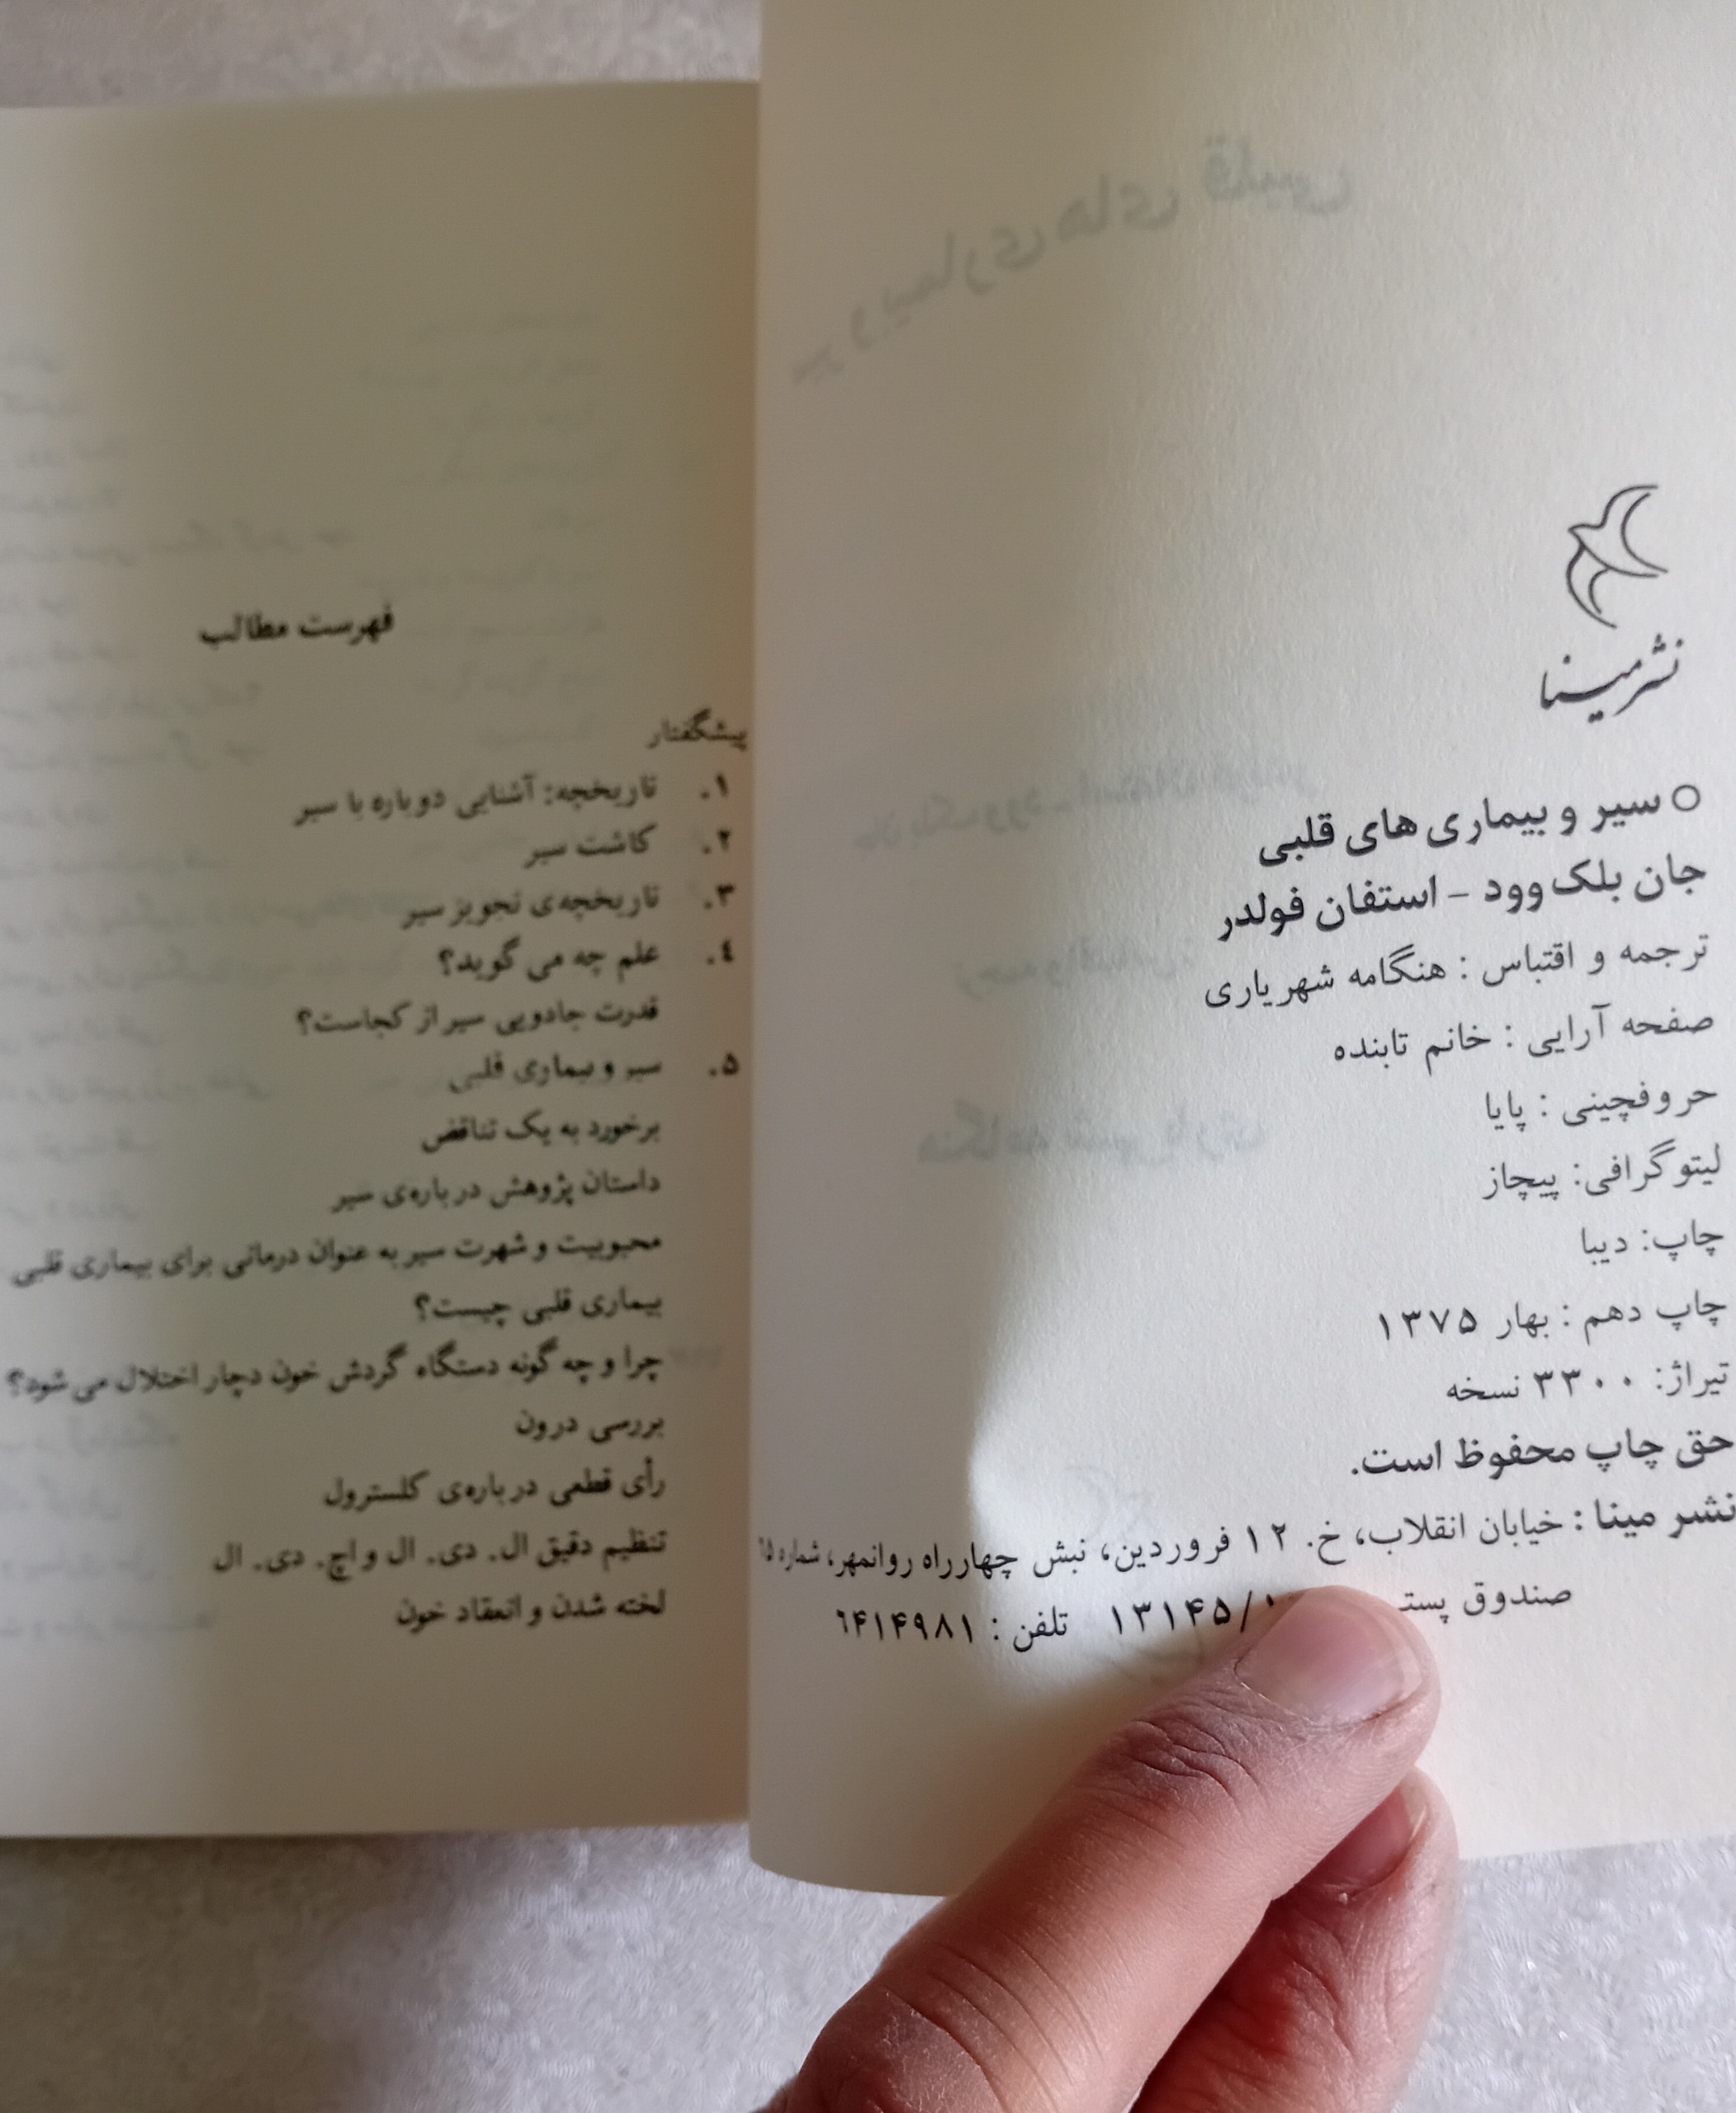 نشر مینا
سیر و بیماری های قلبی
جان بلک وود – استفان فولدر
ترجمه و اقتباس : هنگامه شهریاری
صفحه آرایی : خانم تابنده
حروفچینی : پایا
لیتوگرافی: پیچاز
چاپ: دیبا
چاپ دهم : بهار ۱۳۷۵
تیراژ: ۳۳۰۰ نسخه
حق چاپ محفوظ است.
نشر مینا : خیابان انقلاب، خ. ۱۲ فروردین، نبش چهارراه روانمهر، شماره
صندوق ۱۳۱۴۵/ تلفن : ۶۴۱۴۹۸۱
فهرست مطالب
پیشگفتار
۱. تاریخچه: آشنایی دوباره با سیر
۲. کاشت سیر
۳. تاریخچه‌ی تجویز سیر
۴. علم چه می گوید؟
قدرت جادویی سیر از کجاست؟
۵. سیر و بیماری قلبی
برخورد به یک تناقض
داستان پژوهش درباره‌ی سیر
محبوبیت و شهرت سیر به عنوان درمانی برای بیماری قلبی
بیماری قلبی چیست؟
چرا و چه گونه دستگاه گردش خون دچار اختلال می شود؟
بررسی درون
رأی قطعی درباره‌ی کلسترول
تنظیم دقیق ال. دی. ال و اچ. دی. ال
لخته شدن و انعقاد خون